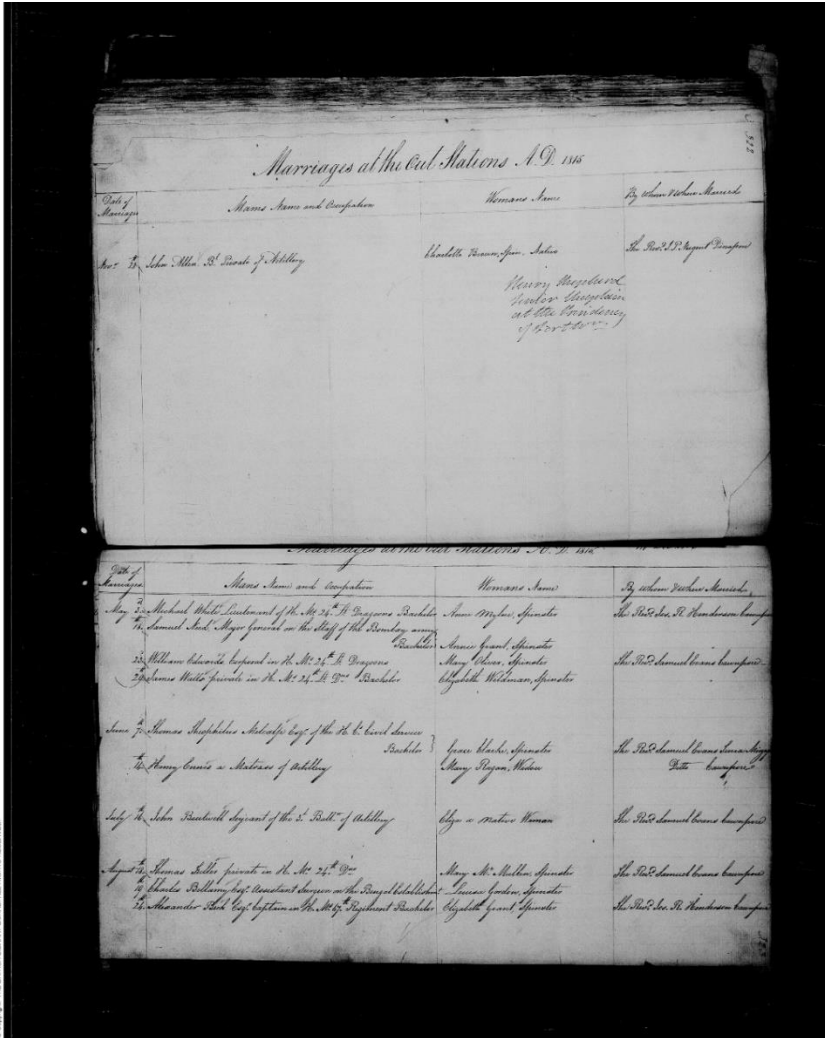 Marriages at the Out Stations A.D. 1815
Date of Marriages
Mans Name and Occupation
Womans Name
By whom & when Married
Novr. 21 John Allen Br. Private of Artillery Charlotte Spin. Native The Revd.
Henry Shepherd
Senior Chaplain
at the Presidency
of Fort Wm.
Marriages at the Out Stations A.D. 1815
Date of Marriages
Mans Name and Occupation
Womans Name
By whom & when Married
May Michael White Lieutenant of H. Ms. 24th Lt. Dragoons Bachelor Anne Spinster The Revd. Jos. R. Henderson Cawnpore
Samuel Major General on the Staff of the Bombay army
Bachelor Annie Grant, Spinster
William Edwards Corporal in H. Ms. 24th Lt. Dragoons Mary Oliver, Spinster The Revd. Samuel Evans Cawnpore
James private in H. Ms. 24th Lt. Dns. Bachelor Elizabeth Wildman, Spinster
June 7th Thomas Theophilus Metcalfe Esqr. of the H. Cs. Civil Service
Bachelor } Grace Clarke, Spinster The Revd. Samuel Evans
Henry Ennis a Matross of Artillery Mary Regan, Widow Ditto Cawnpore
July 16th John Serjeant of the Battn. of Artillery Eliza a Native Woman The Revd. Samuel Evans Cawnpore
August Thomas private in H. Ms. 24th Dns. Mary Mc. Mullen Spinster The Revd. Samuel Evans Cawnpore
19 Charles Bellamy Esqr. Assistant Surgeon on the Bengal Establishmt. Louisa Gordon, Spinster
24 Alexander Esqr. Captain in H. Ms. 67th Regiment Bachelor Elizabeth Grant, Spinster The Revd. Jos. R. Henderson Cawnpore